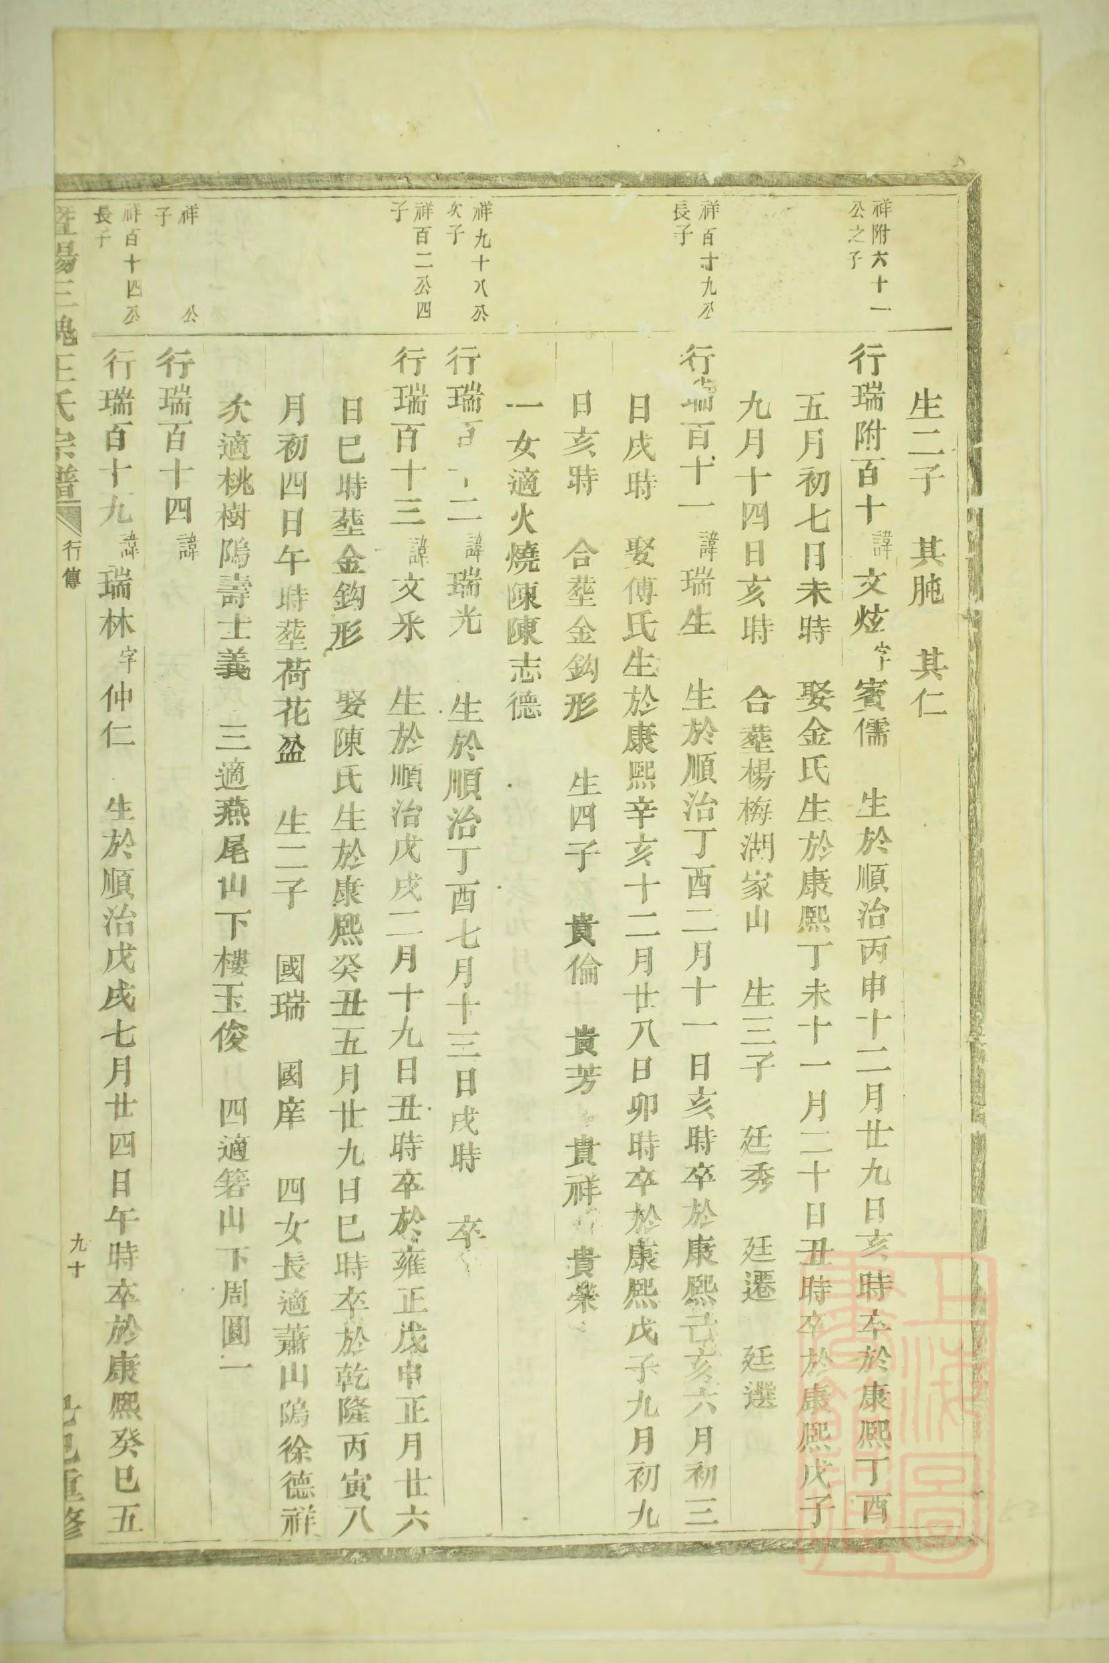 生二子　其肫　其仁
祥附六十一
公之子
行瑞附百十諱文炫字賓儒　生於順治丙申十二月廿九日亥時卒於康熙丁酉
五月初七日未時　娶金氏生於康熙丁未十一月二十日丑時卒於康熙戊子
九月十四日亥時　合塟楊梅湖家山　生三子　廷秀　廷遷　廷選
祥百十九公
長子
行瑞百十一諱瑞生　生於順治丁酉二月十一日亥時卒於康熙己亥六月初三
日戌時　娶傅氏生於康熙辛亥十二月廿八日卯時卒於康熙戊子九月初九
日亥時　合塟金鈎形　生四子　貴倫　貴芳　貴祥　貴榮
一女適火燒陳陳志德
祥九十八公
次子
行瑞百十二諱瑞光　生於順治丁酉七月十三日戌時　卒
祥百二公四
子
行瑞百十三諱文釆　生於順治戊戌二月十九日丑時卒於雍正戊申正月廿六
日巳時塟金鈎形　娶陳氏生於康熙癸丑五月廿九日巳時卒於乾隆丙寅八
月初四日午時塟荷花盆　生二子　國瑞　國庠　四女長適蕭山隖徐德祥
次適桃樹隖壽士義　三適燕尾山下樓玉俊　四適箬山下周圓一
祥　公
子
行瑞百十四諱
祥百十四公
長子
行瑞百十九諱瑞林字仲仁　生於順治戊戌七月廿四日午時卒於康熙癸巳五
暨陽三槐王氏宗譜　行傳　九十　己重修
上海圖書館藏